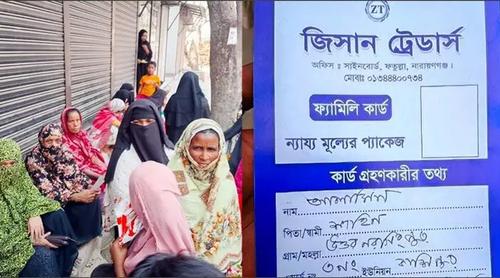 ZT
জিসান ট্রেডার্স
অফিস : সাইনবোর্ড, ফতুল্লা, নারায়ণগঞ্জ।
মোবাঃ ০১৩৪৪৪০০৭৩৪
ফ্যামিলি কার্ড
ন্যায্য মূল্যের প্যাকেজ
কার্ড গ্রহণকারীর তথ্য
নাম
পিতা/স্বামী
গ্রাম/মহল্লা উত্তর নরসিংহপুর
৩নং ইউনিয়ন